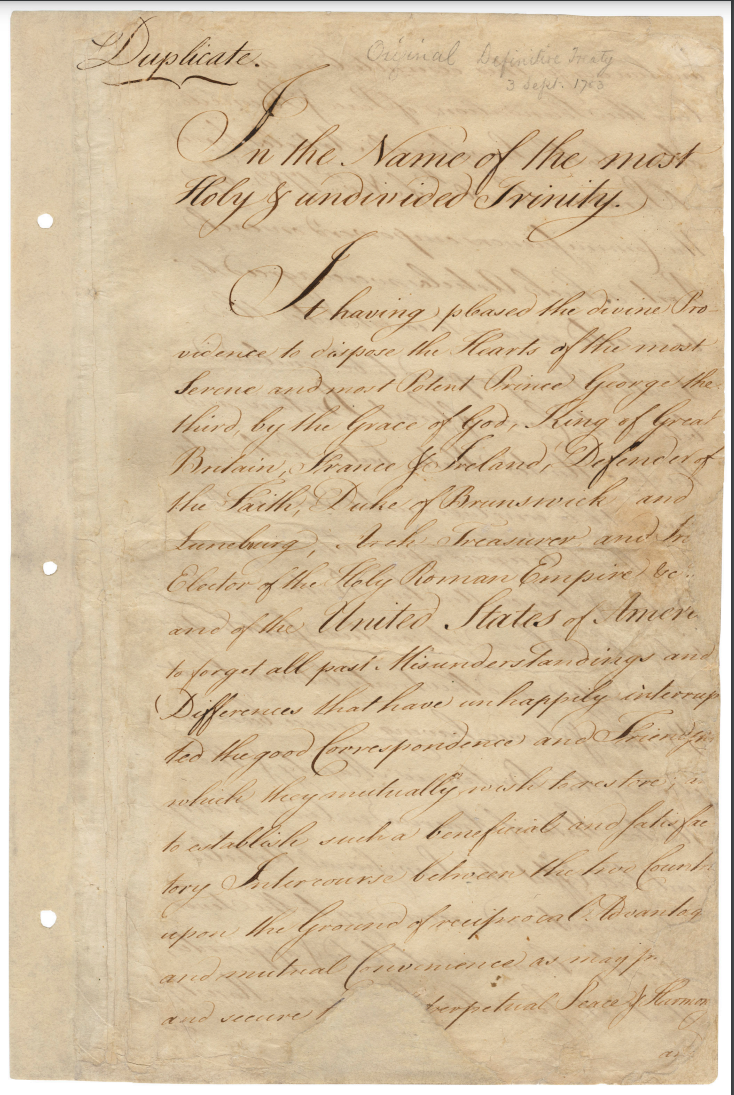 Duplicate.
Original Definitive Treaty
3 Sept. 1783
In the Name of the most
Holy & undivided Trinity.
It having pleased the divine Pro
vidence to dispose the Hearts of the most
Serene and most Potent Prince George the
third, by the Grace of God, King of Great
Britain, France & Ireland, Defender of
the Faith, Duke of Brunswick and
Luneburg, Arch Treasurer and
Elector of the Holy Roman Empire &c.
and of the United States of Ameri
to forget all past Misunderstandings and
Differences that have unhappily interrup
ted the good Correspondence and
which they mutually wish to restore;
to establish such a beneficial and satisfac
tory Intercourse between the two Countr
upon the Ground of reciprocal Advantag
and mutual Convenience as may
and secure perpetual Peace & Harmon